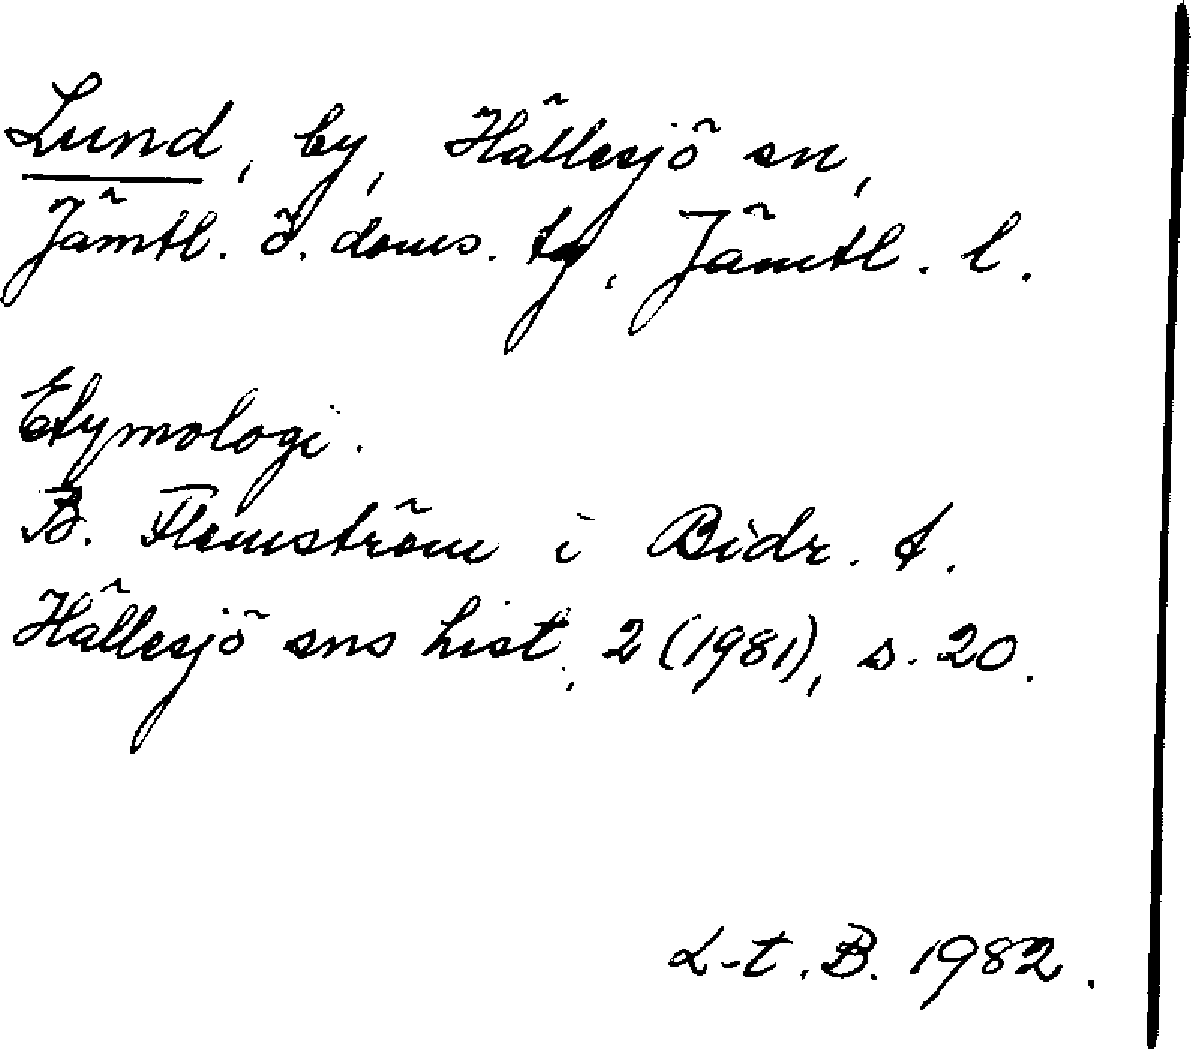 Lund, by, Hällesjö sn,
Jämtl. ö. doms. tg, Jämtl. l.
Etymologi.
B. Flemström i Bidr. t.
Hällesjö sns hist. 2 (1981), s. 20.
L-t. B. 1982.